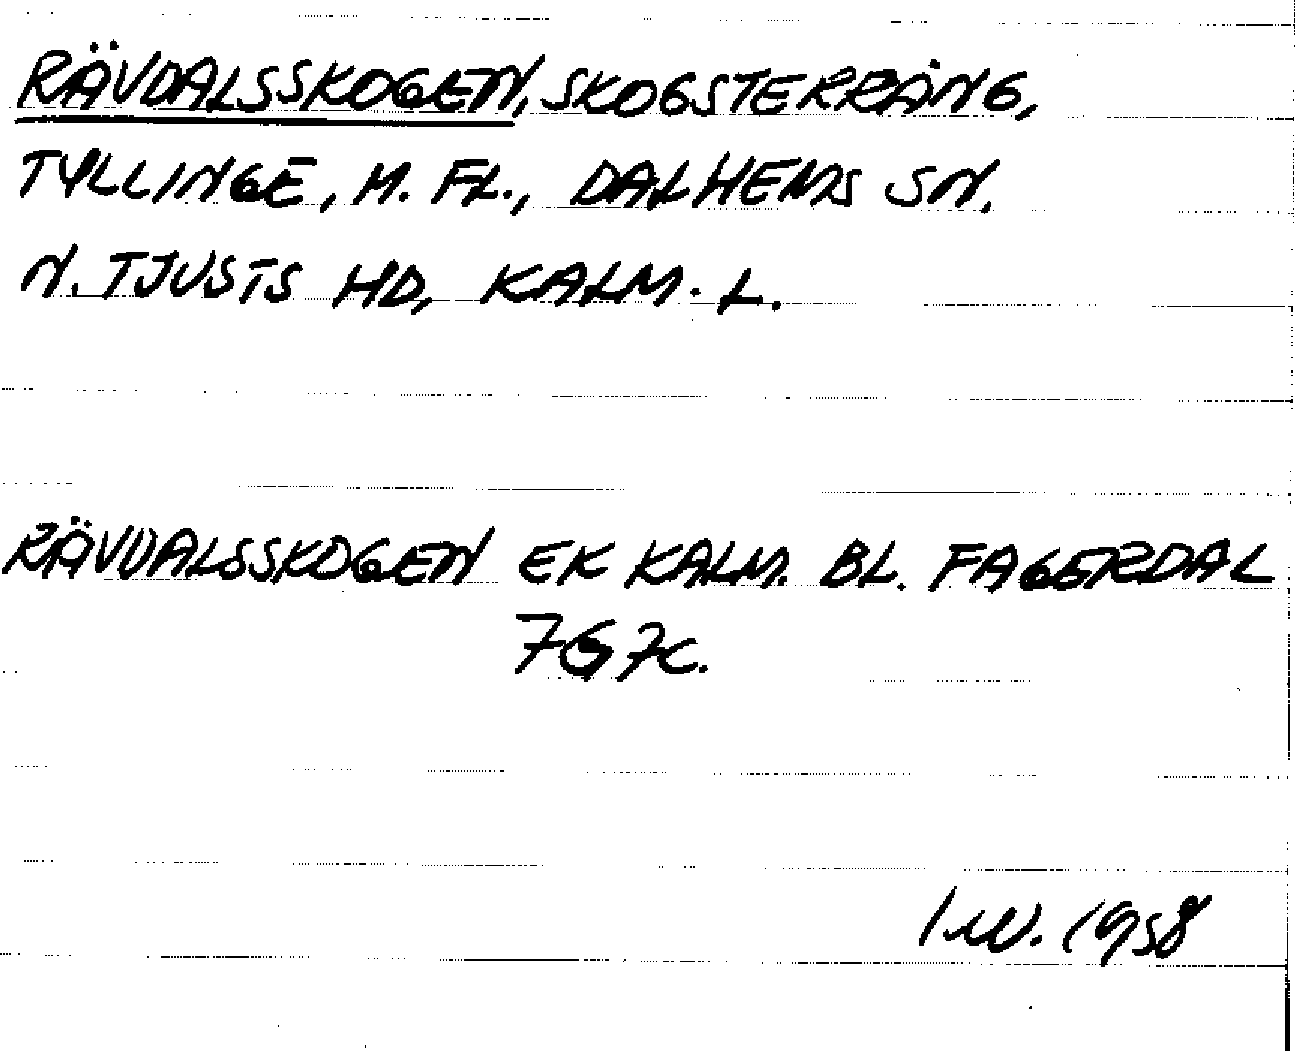 RÄVDALSSKOGEN, SKOGSTERRÄNG,
TYLLINGE, M. FL., DALHEMS SN.
N. TJUSTS HD, KALM. L.
RÄVDALSSKOGEN EK KALM. BL. FAGERDAL
7G 7c.
1958